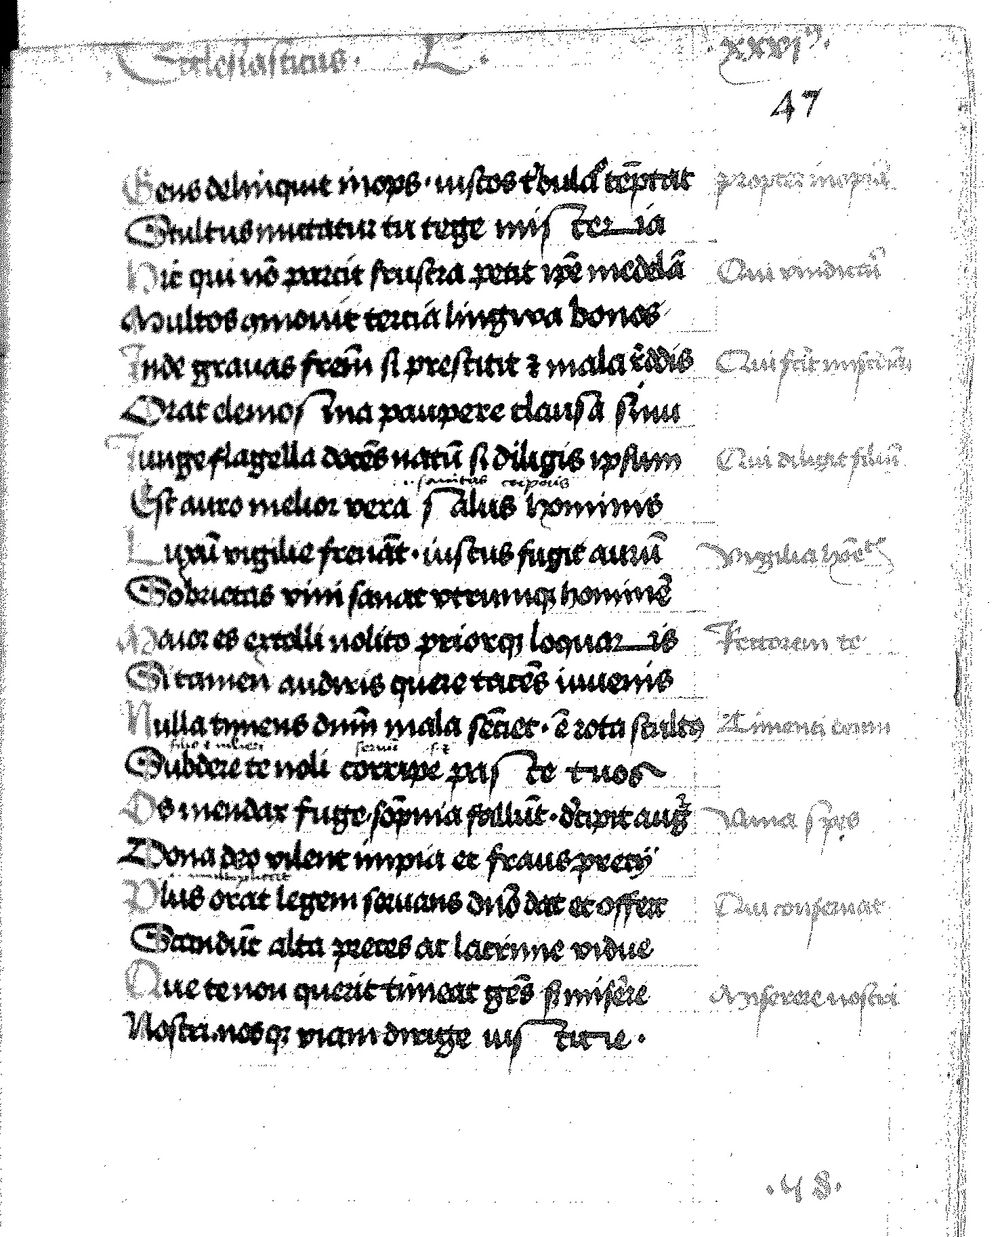 Ecclesiasticus. L. xxvi⁹.
47
Gens delinquit inops · iustos t'bulaᷣ tēptat propter inopiā
Stultus mutatur tu tege misteria
Hic qui nō parcit frustra petit ipē medelā Qui vindictā
Multos gmouit tercia lingwa bonos
Inde grauas frēm si prestitit ⁊ mala r̄ddis Qui fc̄it
Orat elemosina paupere clausa sinu
Iunge flagella docēs natū si diligis ipsum Qui diligit filiū
sanitas corporis
Est auro melior vera salus hominis
Luxū vigilie frenāt · iustus fugit aurū Vigilia
Sobrietas vini sanat vtrumqꝫ hominē
Maior es extolli nolito priorqꝫ loquaris Rectorem te
Si tamen audiris quere tacēs iuuenis
Nulla timens dnm̄ mala sēciet · ē rota Timenti
filio ⁊ mlieri seruū
Subdere te noli corripe pisce tuos
Os mendax fuge · sōpnia fallūt · d'cipit Vana spes
Dona deo vilent impia et fraus precij
Plus orat legem seruans dnō dat et offert Qui conseruat
Scandūt alta preces ac lacrime vidue
Que te non querit timeat gēs si mis'ere Miserere nostri
Nostri. nosqꝫ viam dirige iusticie ·
· 48 ·